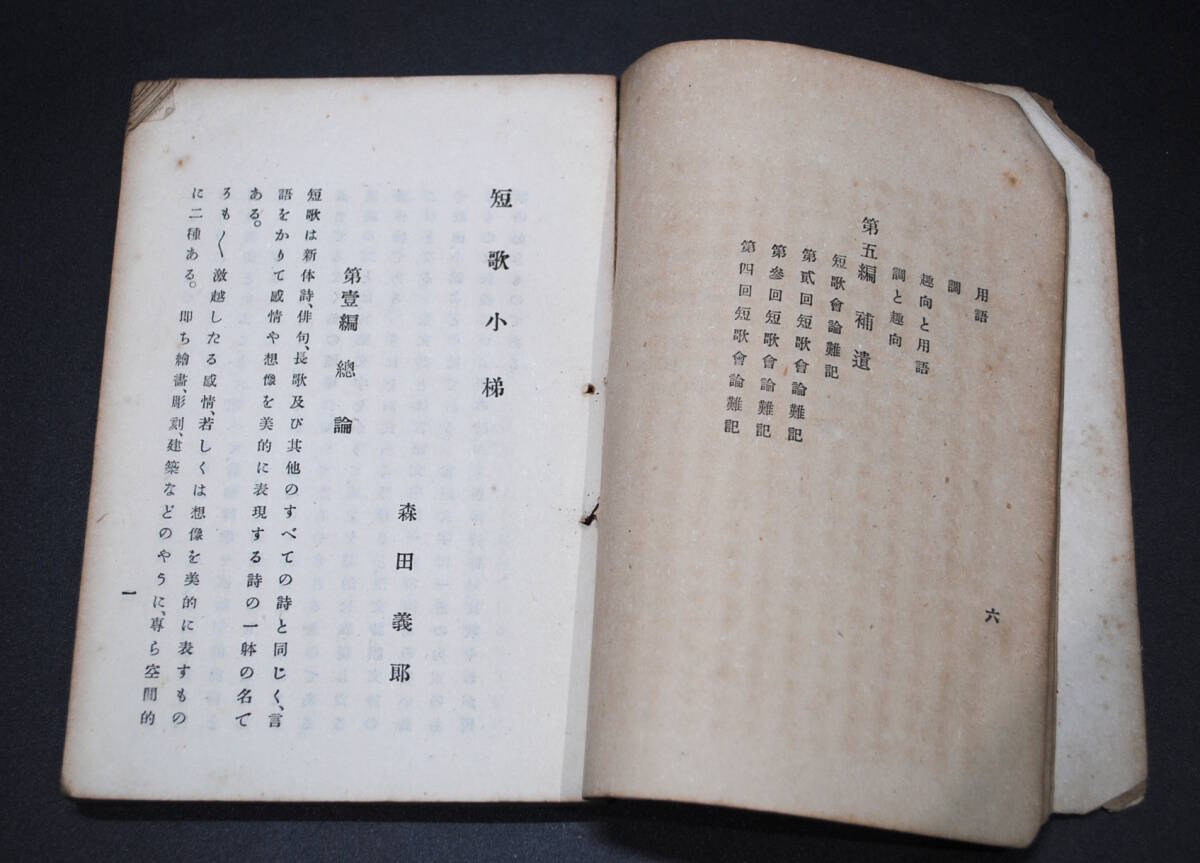 用語
調
趣向と用語
調と趣向
第五編 補遺
短歌會論難記
第貳回短歌會論難記
第參回短歌會論難記
第四回短歌會論難記
六
短歌小梯
森田義郎
第壹編 總論
短歌は新体詩、俳句、長歌及び其他のすべての詩と同じく、言
語をかりて感情や想像を美的に表現する詩の一躰の名て
ある。
そも〱激越したる感情、若しくは想像を美的に表すもの
に二種ある。即ち繪畫、彫刻、建築などのやうに、專ら空間的
一